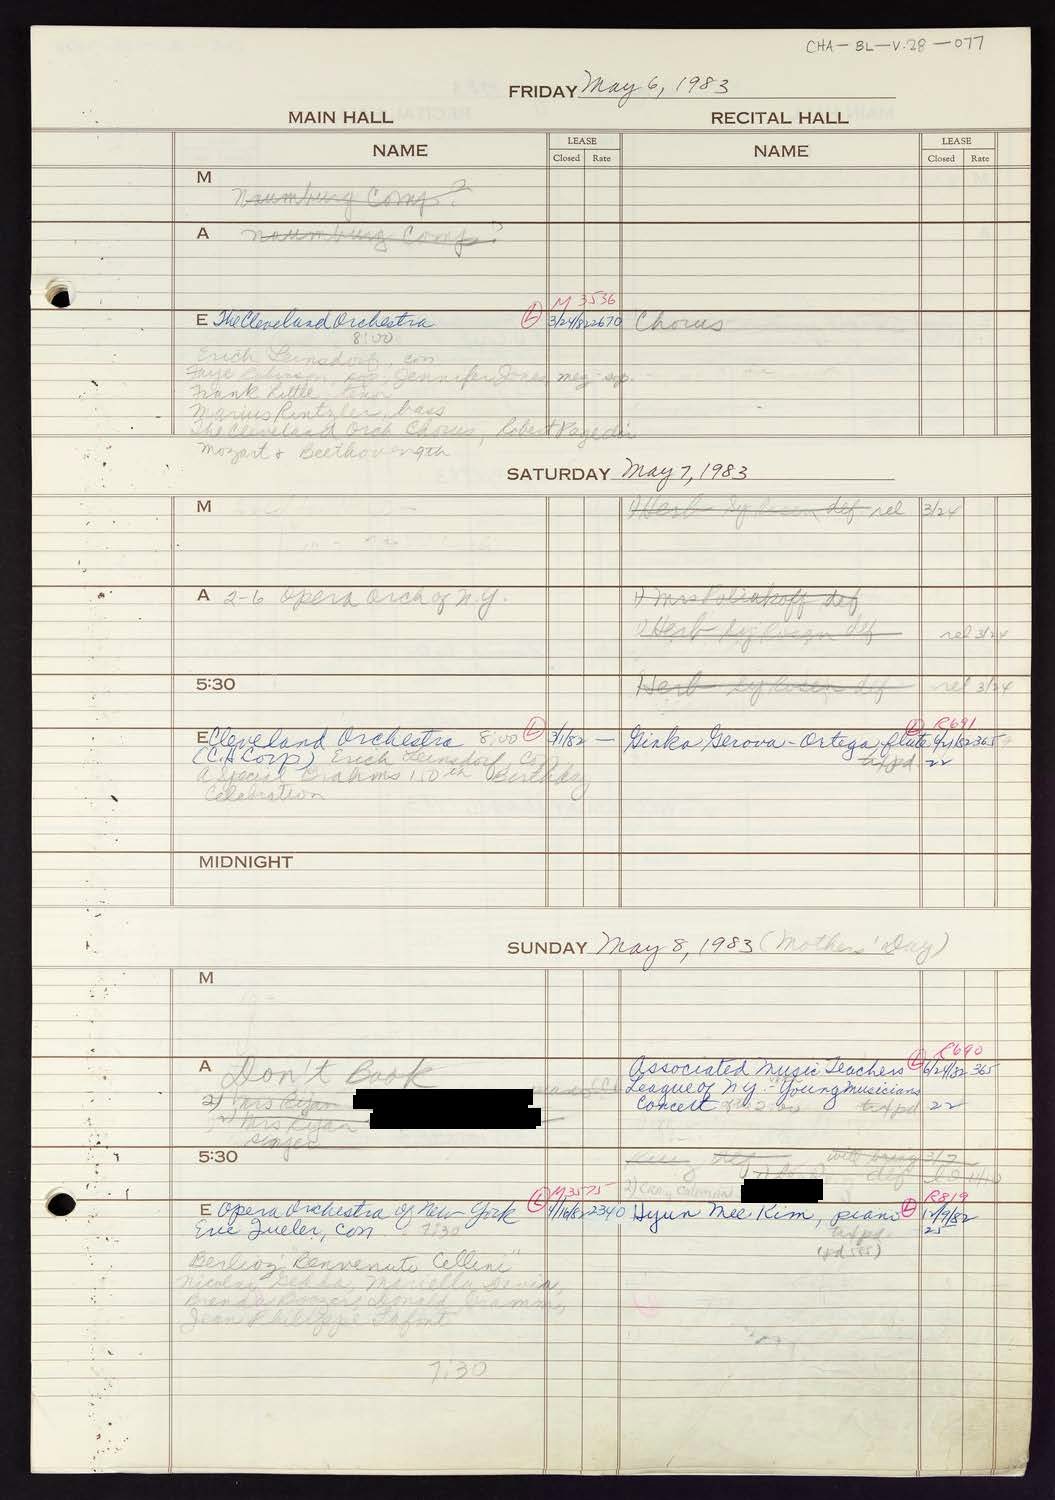 CHA-BL-V.28-077
FRIDAY May 6, 1983
MAIN HALL RECITAL HALL
NAME LEASE Closed Rate NAME LEASE Closed Rate
M
Naumburg Comp?
A Naumburg Comp?
M 3536
E The Cleveland Orchestra L 3/24/82 2670 Chorus
8:00
Erich Leinsdorf, con
Faye Robinson, sop, Jennifer Jones mez-sop.
Frank Little, tenor
Marius Rintzler, bass
The Cleveland Orch Chorus, Robert Page dir
Mozart & Beethoven 9th
SATURDAY May 7, 1983
M 1) Herb def rel 3/24
A 2-6 Opera Orch of N.Y. 1) Mrs Poliakoff def
1) Herb def rel 3/24
5:30 Herb def rel 3/24
R691
E Cleveland Orchestra 8:00 L 3/1/82 — Ginka Gerova-Ortega, flute L 365
(C.H. Corp) Erich Leinsdorf, Con txpd 22
A Special Brahms 150th Birthday
Celebration
MIDNIGHT
SUNDAY May 8, 1983 (Mothers' Day)
M
R690
A Don't Book Associated Music Teachers L 6/24/82 365
2) Mrs Ryan League of NY - Young Musicians
2) Mrs Ryan Concert 2:00 txpd 22
singer
5:30 def will bring 3/7
def 1/10
2) Craig
M3575 R819
E Opera Orchestra of New York L 4/16/82 2340 Hyun Mee Kim, piano L 12/9/82
Eve Queler, con 7:30 txpd 25
(pd 555)
Berlioz "Benvenuto Cellini"
Nicolai Gedda, Mariella Devia,
Brenda Boozer, Donald Gramm,
Jean Philippe Lafont
7:30